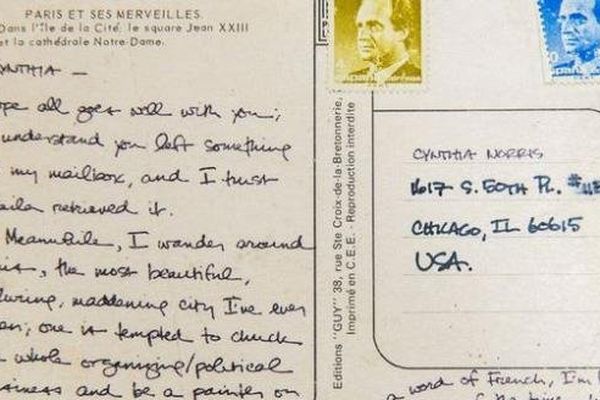 PARIS ET SES MERVEILLES.
Dans l'Île de la Cité, le square Jean XXIII
et la cathédrale Notre-Dame.
YNTHIA —
ope all goes well with you;
understand you left something
my mailbox, and I trust
retrieved it.
Meanwhile, I wander around
is, the most beautiful,
luring, maddening city I've ever
en; one is tempted to chuck
whole organizing/political
siness and be a painter on
Editions "GUY" 38, rue Ste Croix-de-la-Bretonnerie,
Imprimé en C.E.E. - Reproduction interdite
4
españa correos
españa
CYNTHIA NORRIS
1617 S. 50TH PL.
CHICAGO, IL 60615
USA.
a word of French, I'm